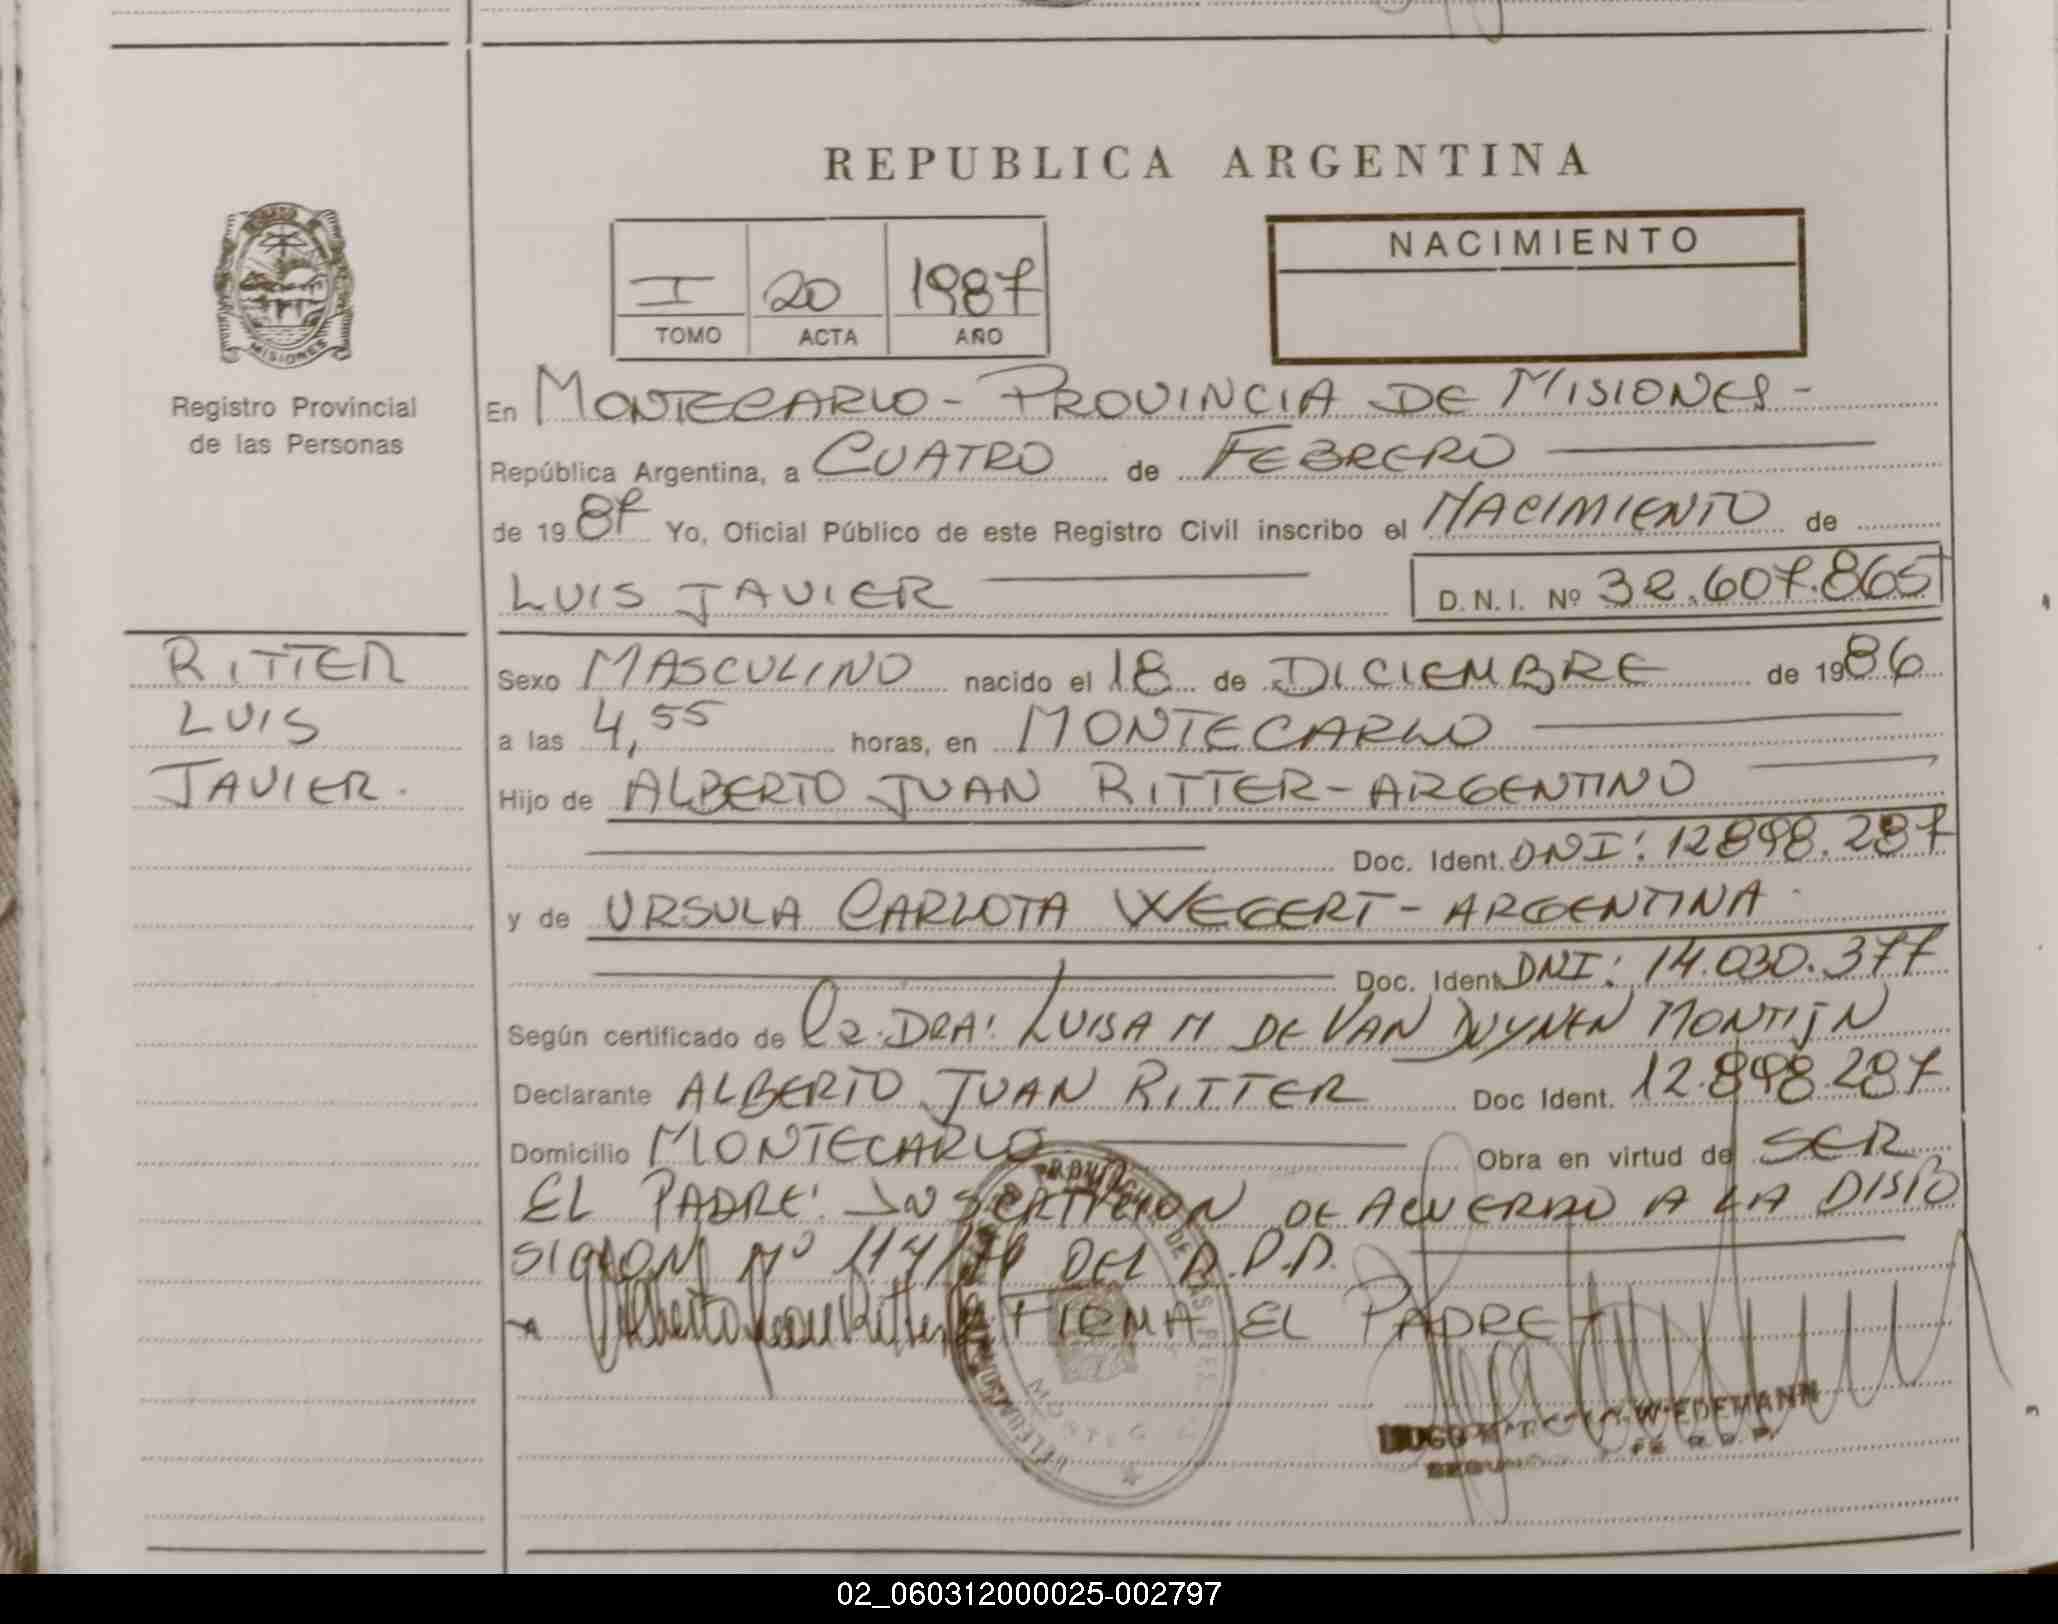 REPUBLICA ARGENTINA
MISIONES
Registro Provincial
de las Personas
I 20 1987
TOMO ACTA AÑO
NACIMIENTO
En MONTECARLO - PROVINCIA DE MISIONES -
República Argentina, a CUATRO de FEBRERO
de 1987 Yo, Oficial Público de este Registro Civil inscribo el NACIMIENTO de
LUIS JAVIER D.N.I. Nº 32.607.865
RITTER
LUIS
JAVIER.
Sexo MASCULINO nacido el 18 de DICIEMBRE de 1986
a las 4,55 horas, en MONTECARLO
Hijo de ALBERTO JUAN RITTER - ARGENTINO
Doc. Ident. DNI: 12898.287
y de URSULA CARLOTA WEGERT - ARGENTINA
Doc. Ident DNI: 14.030.377
Según certificado de DRA: LUISA M DE VAN DUYNEN MONTIJN
Declarante ALBERTO JUAN RITTER Doc Ident. 12.898.287
Domicilio MONTECARLO Obra en virtud de SER
EL PADRE: INSCRIPCION DE ACUERDO A LA DISPO
SICION Nº DEL
Alberto Juan Ritter FIRMA EL PADRE
WIEDEMANN
02_060312000025-002797